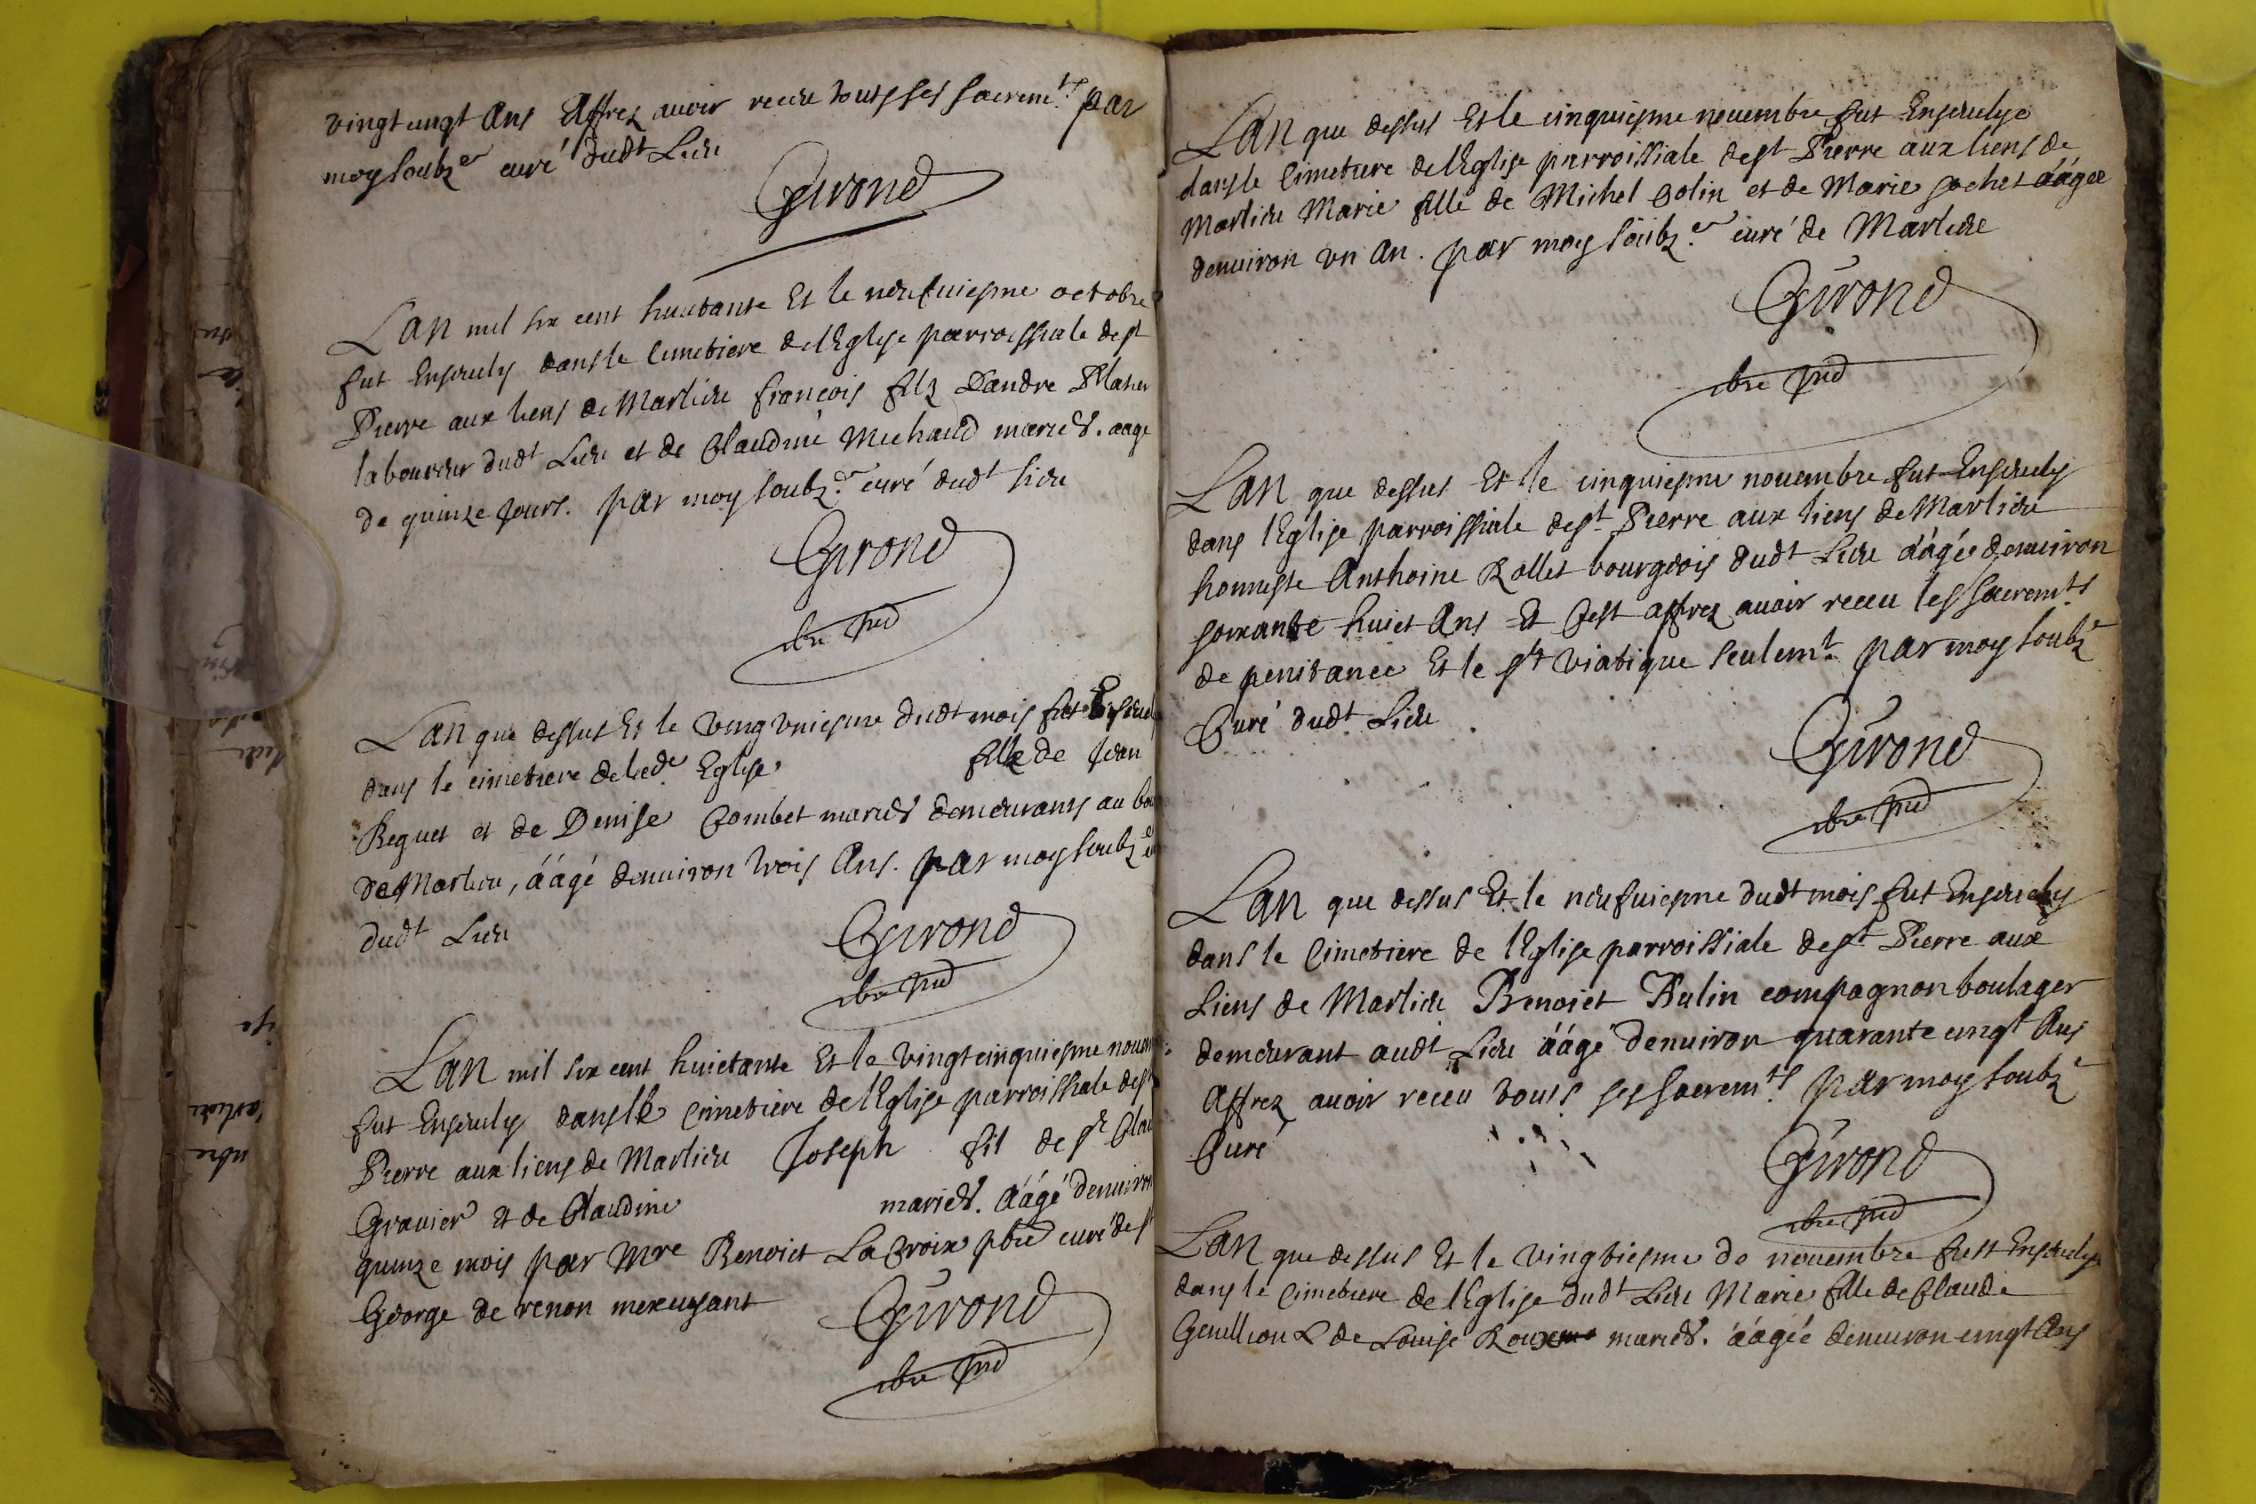 vingt cinqt Ans Affrez avoir receu touts ses sacrem.ts par
moy soubz.er curé dudt Lieu
Girond
Lan mil six cent huictante Et le neufuiesme octobre
fut Enseuely dans le Cimetiere de lEglise parroissiale de st
Pierre aux liens de Marlieu francois filz Dandre Plasier
laboureur dudt Lieu et de Claudine Michaud mariés. aagé
de quinze Jours. par moy soubz.er curé dudt lieu
Girond
cure susd
Lan que dessus Et le ving vniesme dudt mois fut Enseuely
dans le cimetiere de lad.e Eglise fille de Jean
Reguet et de Denise Combet mariés demeurants au bou
de Marlieu, áágé denuiron trois Ans. par moy soubz.er
dudt Lieu
Girond
cure susd
Lan mil six cent huictante Et le vingt cinquiesme nouem
fut Enseuely dans le Cimetiere de lEglise parroissiale de st
Pierre aux liens de Marlieu Joseph fil de sr Clau
Grauier Et de Claudine mariés. áágé denuiron
quinze mois par Mre Benoict La Croix pbre curé de st
George de renon mexcusant
Girond
cure susd
Lan que dessus Et le cinquiesme nouembre fut Enseuelye
dans le Cimetiere de lEglise parroissiale de st Pierre aux liens de
Marlieu Marie fille de Michel Colin et de Marie sochet áágée
denuiron vn An. par moy soubz.er curé de Marlieu
Girond
cure susd
Lan que dessus Et le cinquiesme nouembre fut Enseuely
dans lEglise parroissiale de st Pierre aux liens de Marlieu
honneste Anthoine Rollet bourgeois dudt Lieu áágée denuiron
soixante huict Ans Et Cest affrez auoir receu les sacrem.ts
de penitance Et le st viatique seulem.t par moy soubz.er
Curé dudt Lieu
Girond
cure susd
Lan que dessus Et le neufuiesme dudt mois fut Enseuely
dans le Cimetiere de lEglise parroissiale de st Pierre aux
Liens de Marlieu Benoict Hulin compagnon boulager
demeurant audt Lieu áágé denuiron quarante cinqt Ans
Affrez auoir receu touts ses sacrem.ts par moy soubz.er
Curé
Girond
cure susd
Lan que dessus Et le vingtiesme de nouembre fust Enseuelye
dans le Cimetiere de lEglise dudt Lieu Marie fille de Claude
Genillion & de Louise Roux mariés. áágée denuiron cinqt Ans